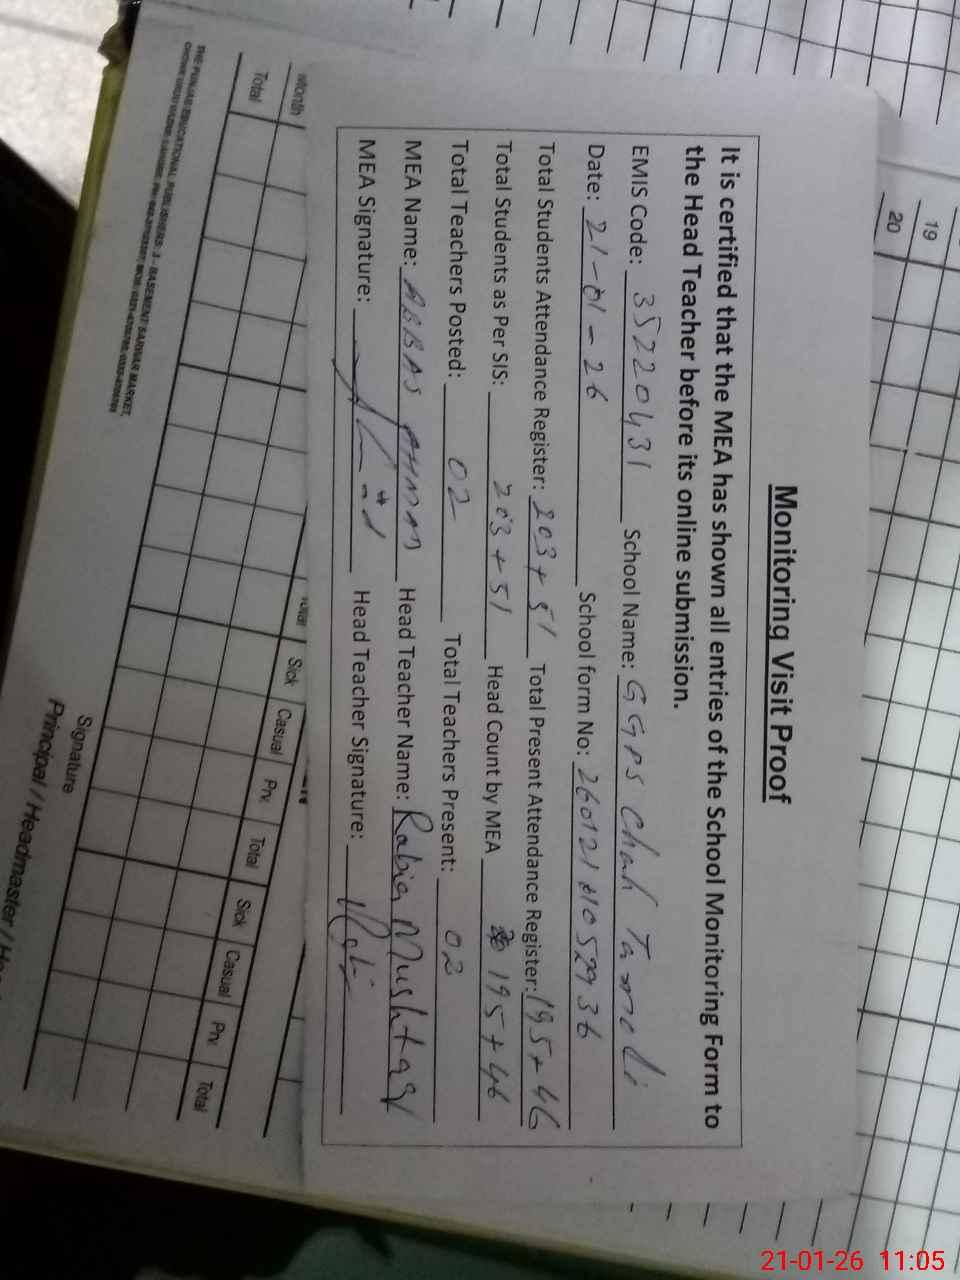 Monitoring Visit Proof
It is certified that the MEA has shown all entries of the School Monitoring Form to
the Head Teacher before its online submission.
EMIS Code: 35220431 School Name: GGPS Chah Tamoli
Date: 21-01-26 School form No:
Total Students Attendance Register: 203+51 Total Present Attendance Register: 195+46
Total Students as Per SIS: 203+51 Head Count by MEA 195+46
Total Teachers Posted: 02 Total Teachers Present: 02
MEA Name: ABBAS Head Teacher Name: Rabia Mushtaq
MEA Signature: Head Teacher Signature:
19
20
Month
Total
Sick Casual Prv. Total Sick Casual Prv. Total
Signature
Principal / Headmaster
THE PUNJAB EDUCATIONAL PUBLISHERS: 3 - BASEMENT SARWAR MARKET,
21-01-26 11:05